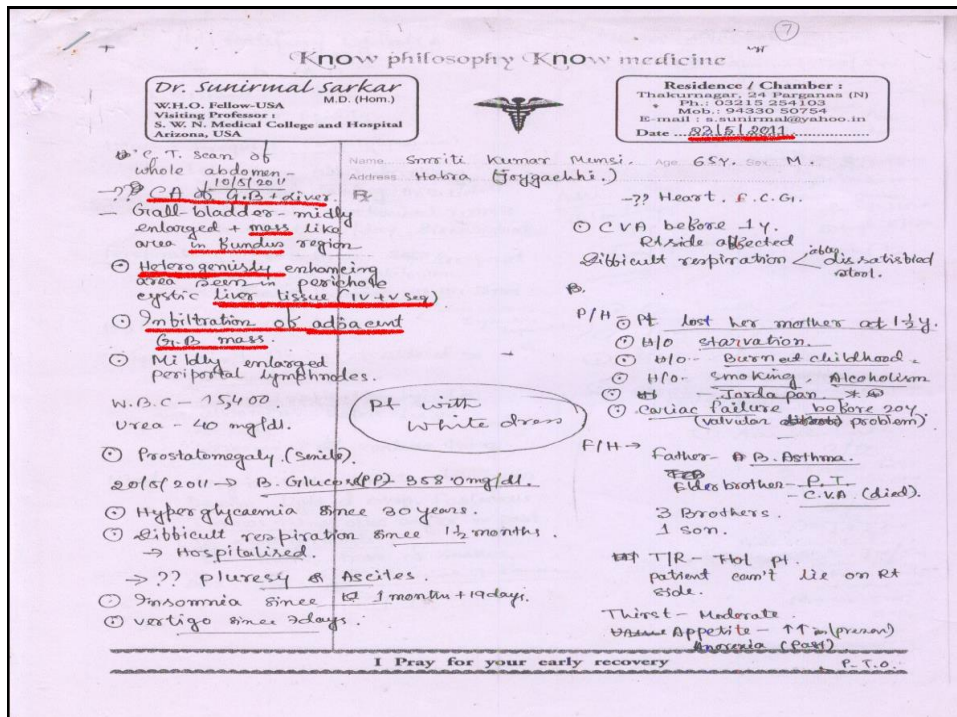 7
Know philosophy Know medicine
Dr. Sunirmal Sarkar
M.D. (Hom.)
W.H.O. Fellow-USA
Visiting Professor :
S. W. N. Medical College and Hospital
Arizona, USA
Residence / Chamber :
Thakurnagar, 24 Parganas (N)
Ph.: 03215 254103
Mob.: 94330 50754
E-mail : s.sunirmal@yahoo.in
Date 23/5/2011
Name Smriti Kumar Munsi. Age 65Y. Sex M.
Address Habra (Joygachhi.)
C.T. Scan of
whole abdomen -
10/5/2011
→ ?? CA of G.B + Liver.
- Gall-bladder - midly
enlarged + mass like
area in fundus region
Heterogenisty enhancing
area seen in perichole
cystic liver tissue (IV + V seg)
Infiltration of adjacent
G.B mass.
Mildly enlarged
periportal lymphnodes.
W.B.C - 15,400.
Urea - 40 mg/dl.
Prostatomegaly. (Senile).
20/5/2011 → B. Glucose (PP) 358.0 mg/dl.
Hyperglycaemia since 30 years.
Difficult respiration since 1½ months.
→ Hospitalised.
→ ?? Pluresy & Ascites.
Insomnia since 1 months + 19 days.
Vertigo since 7 days.
Pt with
White dress
-?? Heart. E.C.G.
CVA before 1y.
Rt side affected
Difficult respiration < after dissatisfied
stool.
P/H - Pt lost her mother at 1½ y.
H/O starvation.
H/O - Burn at childhood.
H/O - Smoking, Alcoholism
Jarda pan.
Cariac failure before 20y.
(valvular problem).
F/H → Father - B. Asthma.
Elder brother - P.T.
- C.V.A (died).
3 Brothers.
1 son.
T/R - Hot pt.
patient can't lie on Rt
side.
Thirst - Moderate.
Appetite - ↑↑ (present)
Anorexia (Past)
I Pray for your early recovery
P.T.O.